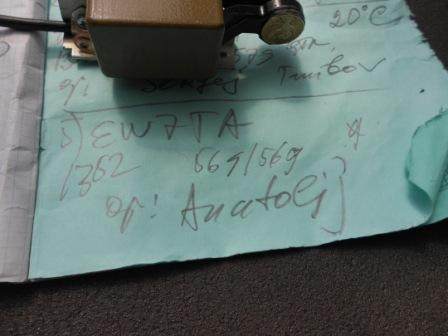 20°C
op: Sergej Tambov
5) EW7TA
1352 569/569
op: Anatolij